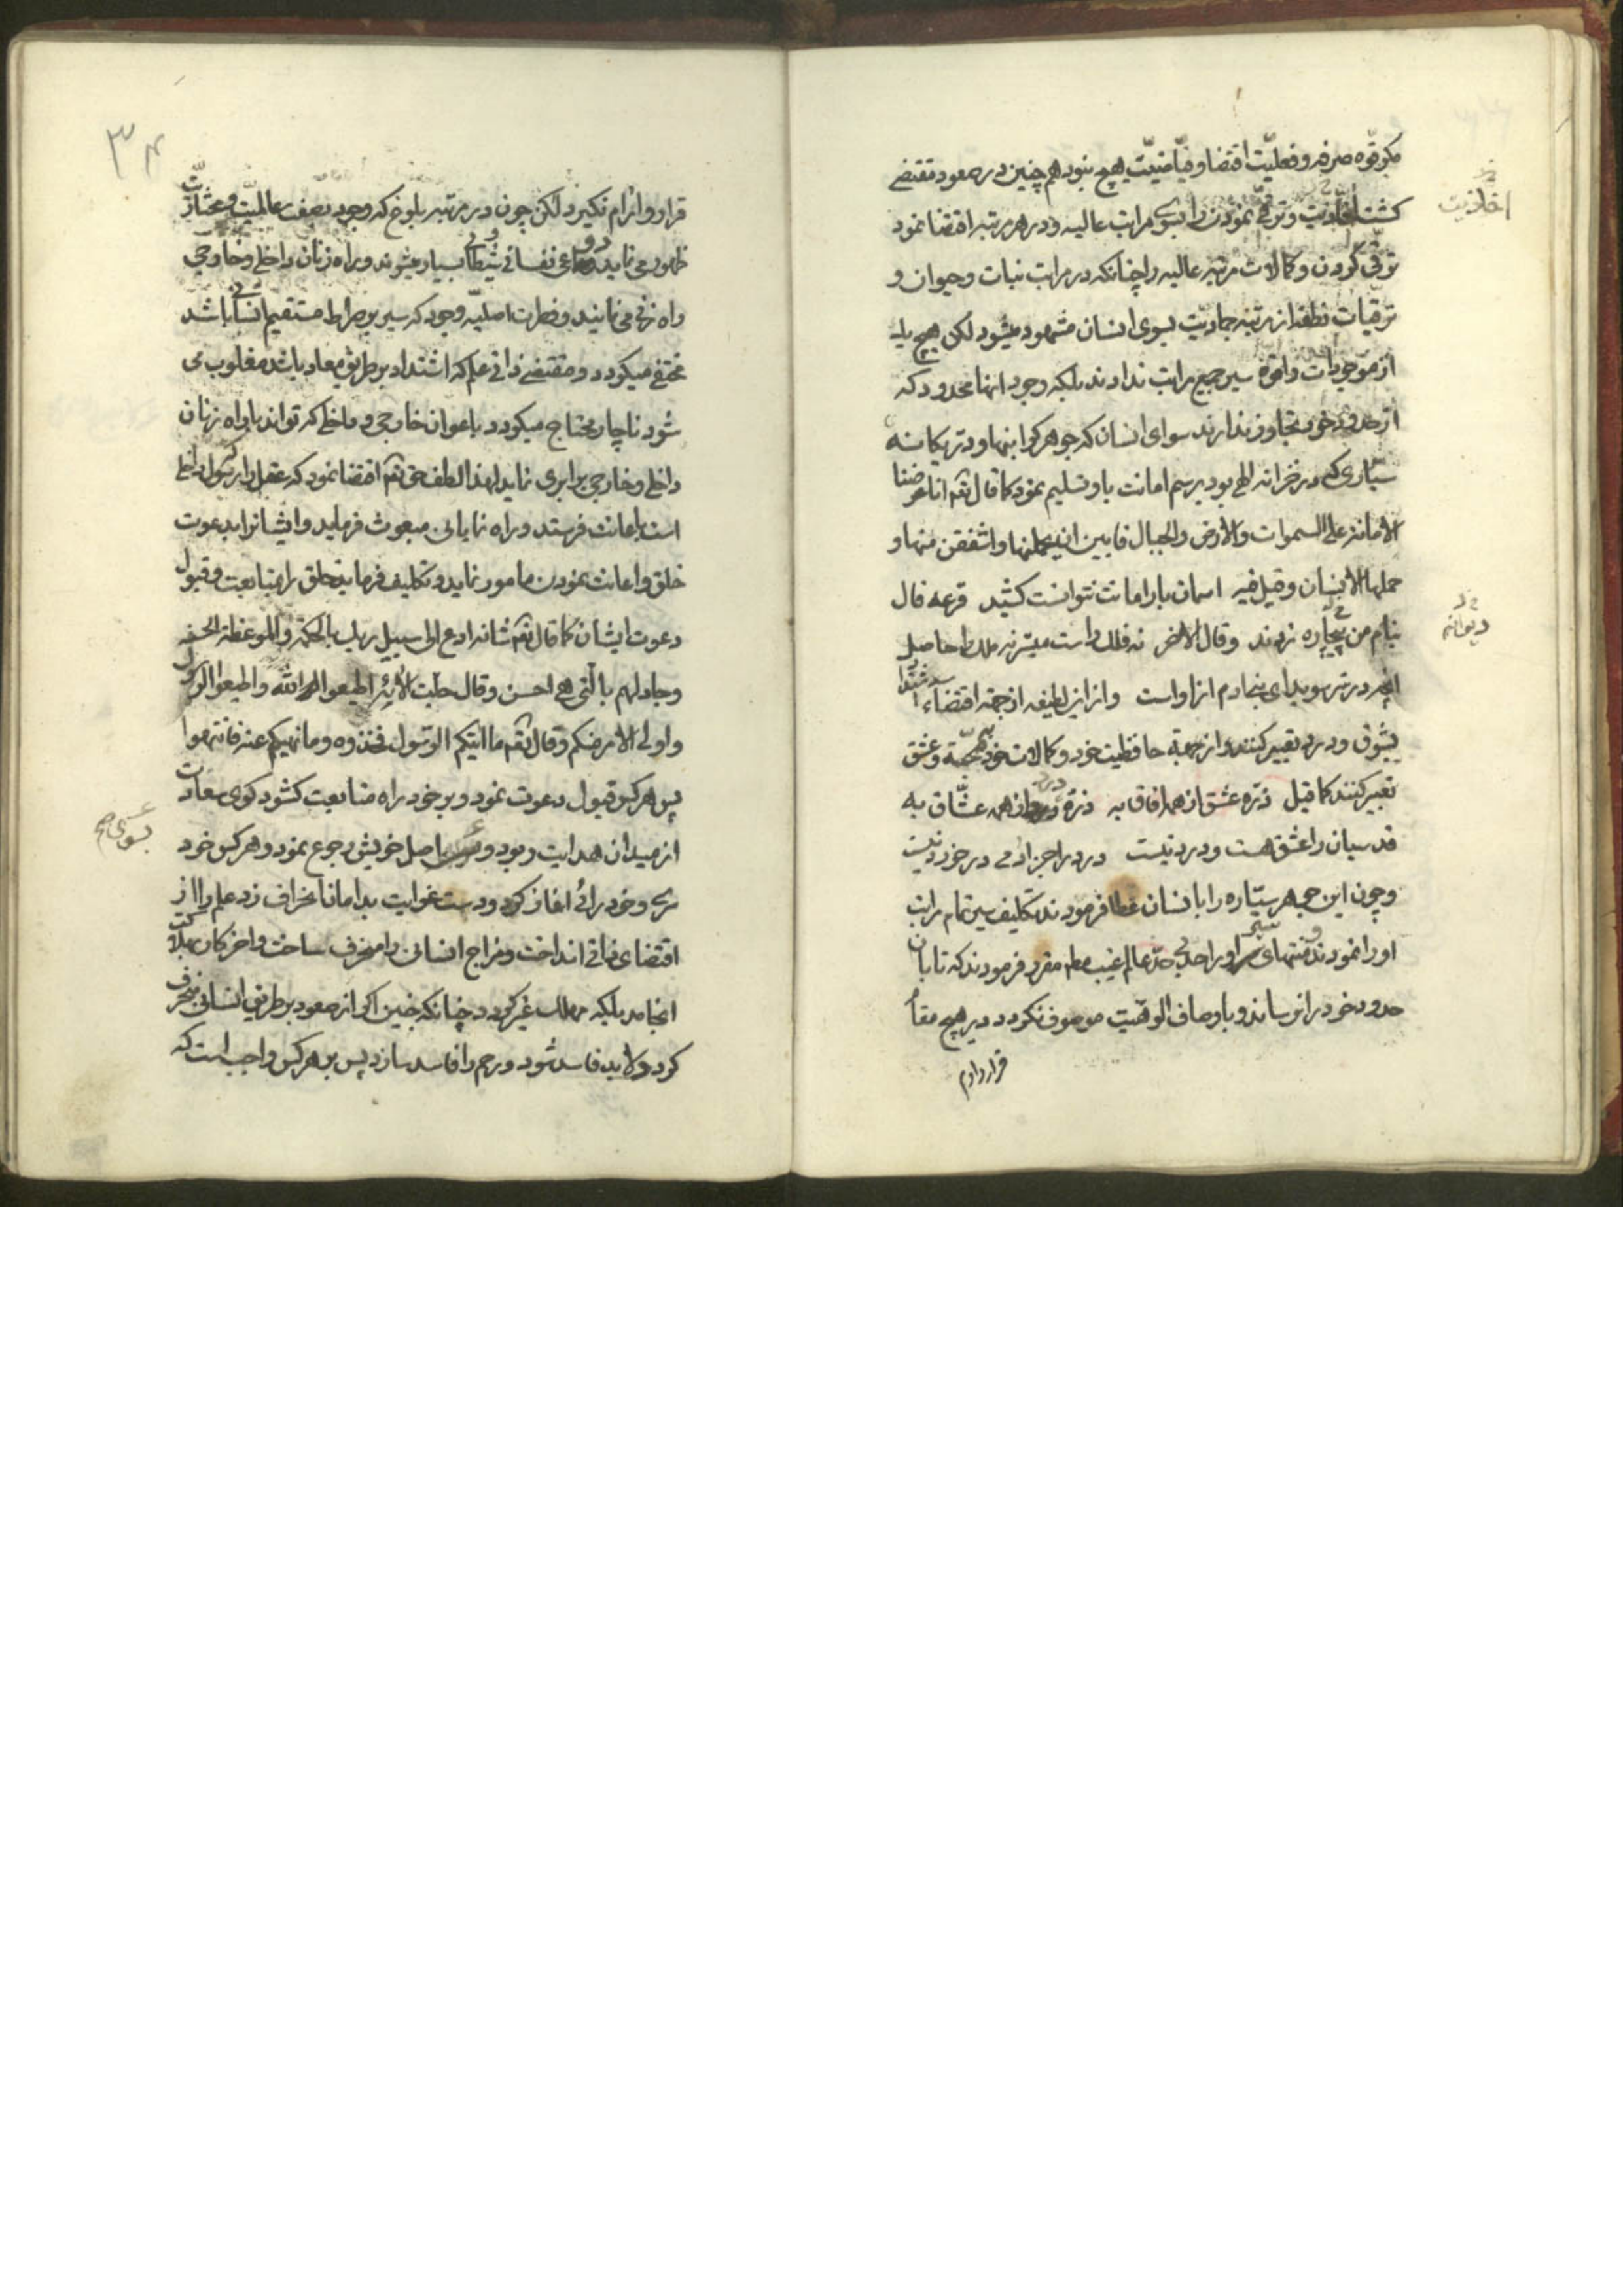 مکر قوه صرفه و فعلیّت اقتضا و فیّاضیّت هیچ نبود هم چنین در صعود مقتضی
کشت اخاذیت و ترقی نمودن را بسوی مراتب عالیه و در هر مرتبه اقتضا نمود
اخاذیت
ترقی کردن و کمالات مرتبه عالیه را چنانکه در مراتب نبات و حیوان و
ترقیات نطفه از مرتبه جمادیت بسوی انسان مشهود میشود لکن هیچ یک
از موجودات را قوه سیر جمیع مراتب ندادند بلکه وجود انها محدود که
از حدود خود تجاوز ندارند سوای انسان که جوهر کرانبها و در یکانه
سیّاری که در خزانه الهی بود برسم امانت باو تسلیم نمود کما قال تعم انا عرضنا
الامانة علی السموات والارض والجبال فابین ان یحملنها واشفقن منها و
حملها الانسان و قیل فیه اسمان بار امانت نتوانست کشید قرعه فال
بنام من بیچاره زدند و قال الاخر نه فلک راست میسّر نه ملک را حاصل
دیوانه
انچه در سر سویدای بنی ادم ازاو است و از این لطیفه از جهة اقتضاء اشتداد
بشوق و درد تعبیر کنند و از جهة حافظیت خود و کمالات خود بمحبّة و عشق
تعبیر کنند کما قیل ذرّه عشق از همه افاق به ذرّه درد از همه عشّاق به
قدسیان را عشق هست و درد نیست درد را جز ادمی در خورد نیست
و چون این جوهر سیّاره را بانسان عطا فرمودند تکلیف سیر تمام مراتب
او را نمودند و منتهای سیر او را حد بی حدّ عالم غیب مطلق مقرر فرمودند که تا بان
حدود خود را نرساند و باوصاف الوهیّت موصوف نکردد در هیچ مقام
قرار و ارام
۳۴
قرار و ارام نکیرد لکن چون در مرتبه بلوغ که وجود بصفت عالمیّت و مختاریّت
ظهور می نماید دواعی نفسانی و شیطانی بسیار میشوند و راه زنان داخلی و خارجی
راه زنی می نمایند و فطرت اصلیّه وجود که سیر بر صراط مستقیم انسانی باشد
مختفی میکردد و مقتضی ذاتی علم که اشتداد بر طریق معاد باشد مغلوب می
شود ناچار محتاج میکردد باعوان خارجی و داخلی که تواند با راه زنان
داخلی و خارجی برابری نماید لهذا لطف حق تعم اقتضا نمود که عقل را که رسول داخلی
است باعانت فرستد و راه نمایانی مبعوث فرماید و ایشانرا بدعوت
خلق و اعانت نمودن مامور نماید و تکلیف فرماید خلق را بمتابعت و قبول
دعوت ایشان کما قال تعم شانه ادع الی سبیل ربک بالحکمة والموعظة الحسنه
وجادلهم بالتی هی احسن و قال جلّت الائه اطیعوا الله واطیعوا الرسول
واولی الامر منکم و قال تعم ما اتیکم الرّسول فخذوه و ما نهیکم عنه فانتهوا
پس هر کس قبول دعوت نمود و بر خود راه متابعت کشود کوی سعادت
از میدان هدایت ربود و بسوی اصل خویش رجوع نمود و هر کس خود
بسوی صح
سری و خود رائی اغاز کرد و دست غوایت بدامان انحراف زد علم را از
اقتضای ذاتی انداخت و مزاج انسانی را منحرف ساخت و اخر کار بهلاکت
انجامد بلکه مهلک غیر کردد چنانکه جنین اکر از صعود بر طریق انسانی منحرف
کردد لابد فاسد شود و رحم را فاسد سازد پس بر هر کس واجب است که